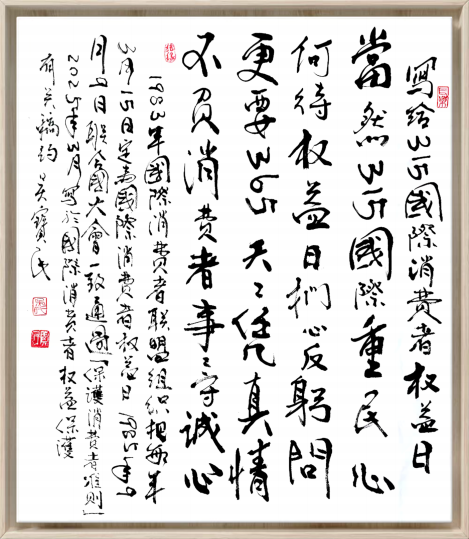 寫给315國際消费者权益日
當然315國際重民心
何待权益日捫心反躬問
更要365天々任凡真情
不負消费者事々守誠心
1983年國際消费者联盟組织把每年
3月15日定為國際消费者权益日 1985年4
月9日联合國大會一致通過「保護消费者准则」
2025年3月寫於國際消费者权益保護
有关稿约 吴寶民